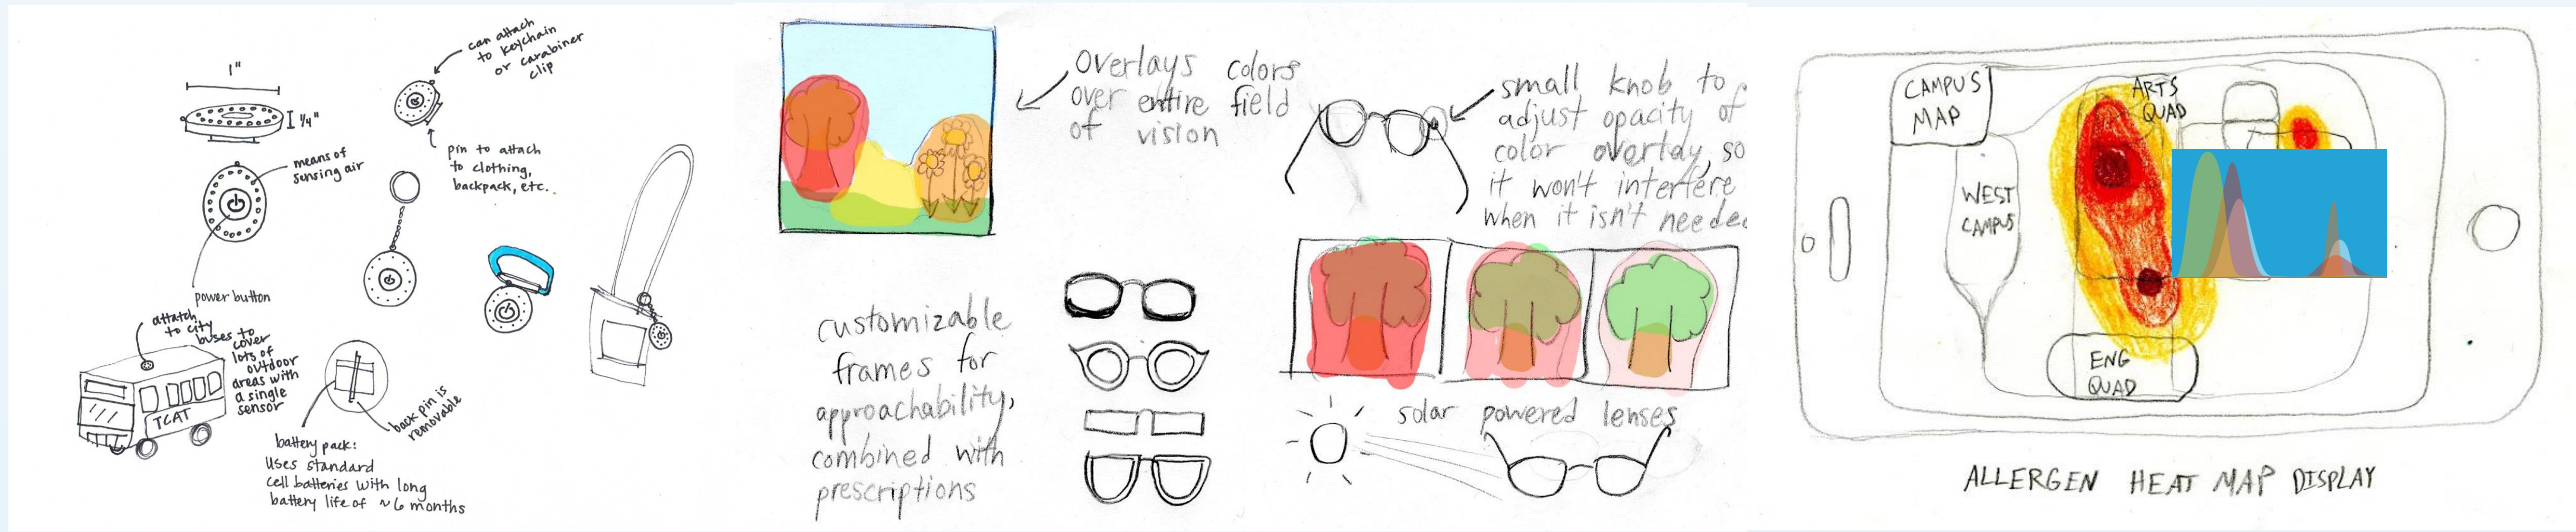 1"
1/4"
can attach
to keychain
or carabiner
clip
means of
sensing air
pin to attach
to clothing,
backpack, etc..
power button
attatch
to city
buses to
cover
lots of
outdoor
areas with
a single
sensor
TCAT
back pin is
removable
battery pack:
uses standard
cell batteries with long
battery life of ~6 months
overlays colors
over entire field
of vision
small knob to
adjust opacity of
color overlay, so
it won't interfere
when it isn't needed
customizable
frames for
approachability,
combined with
prescriptions
solar powered lenses
CAMPUS
MAP
ARTS
QUAD
WEST
CAMPUS
ENG
QUAD
ALLERGEN HEAT MAP DISPLAY